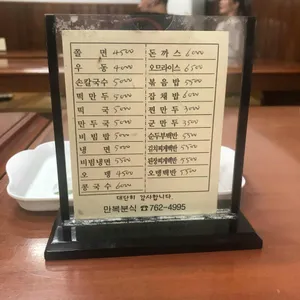 쫄 면 4500 돈 까 스 6000
우 동 4000 오므라이스 6500
손칼국수 5000 볶 음 밥 5500
떡 만 두 5000 잡 채 밥 6000
떡 국 5000 찐 만 두 3000
만 두 국 5000 군 만 두 3500
비 빔 밥 5000 순두부백반 5500
냉 면 5000 김치찌개백반 5500
비빔냉면 5500 된장찌개백반 5500
오 뎅 4500 오뎅백반 5500
콩 국 수 6000
대단히 감사합니다
만복분식 ☎762-4995